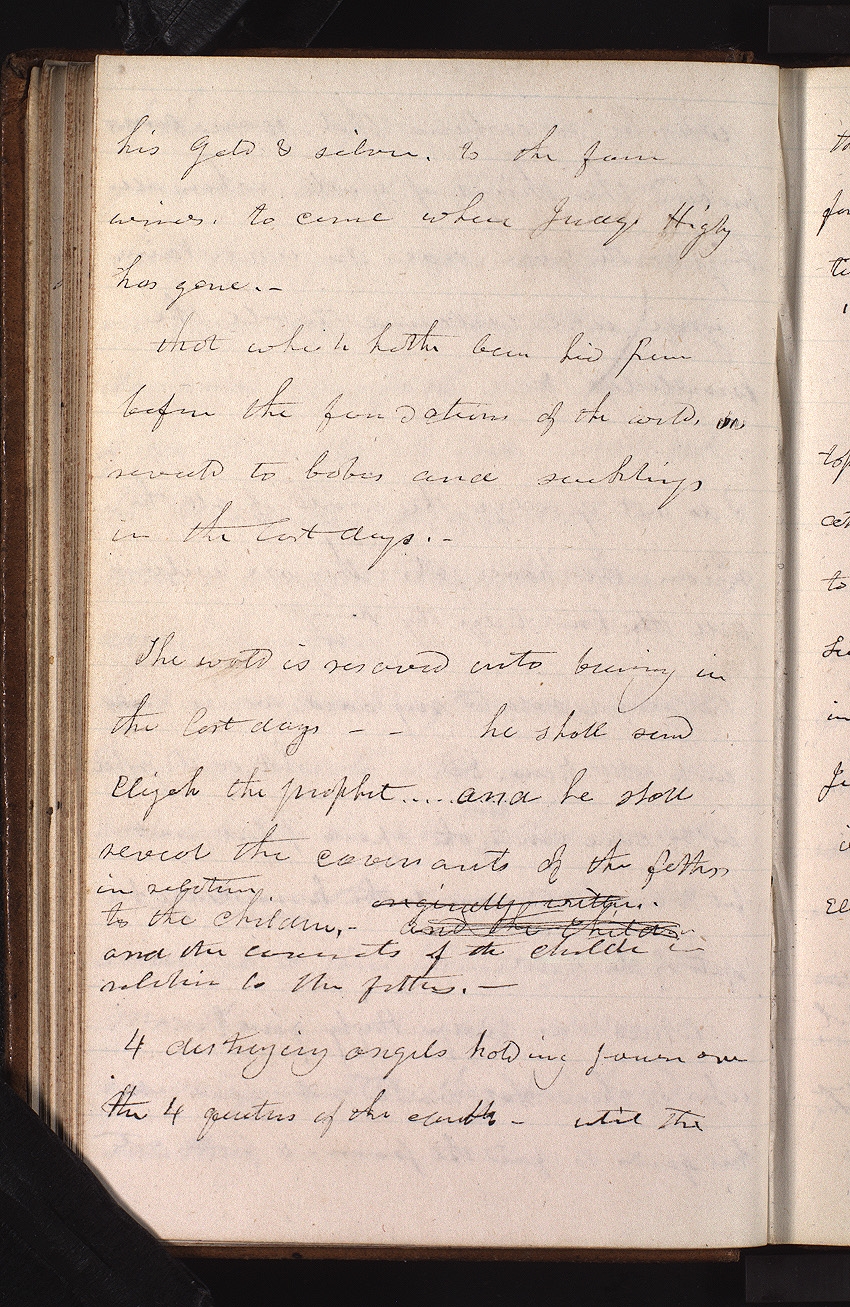 his gold & silver. to the four
winds. to come where Judge Higby
has gone.-
that which hath been hid from
before the foundations of the world. is
reveald to babes and sucklings
in the last days.-
The world is reserved unto burning in
the last days - - he shall send
Elijah the prophet..... and he shall
reveal the covenants of the fathers
in relation. originally written.
to the children.- and the childr
and the covenants of the childn in
relation to the fathers.-
4 destroying angels holding power over
the 4 quarters of the earth - until the
to
for
to
in